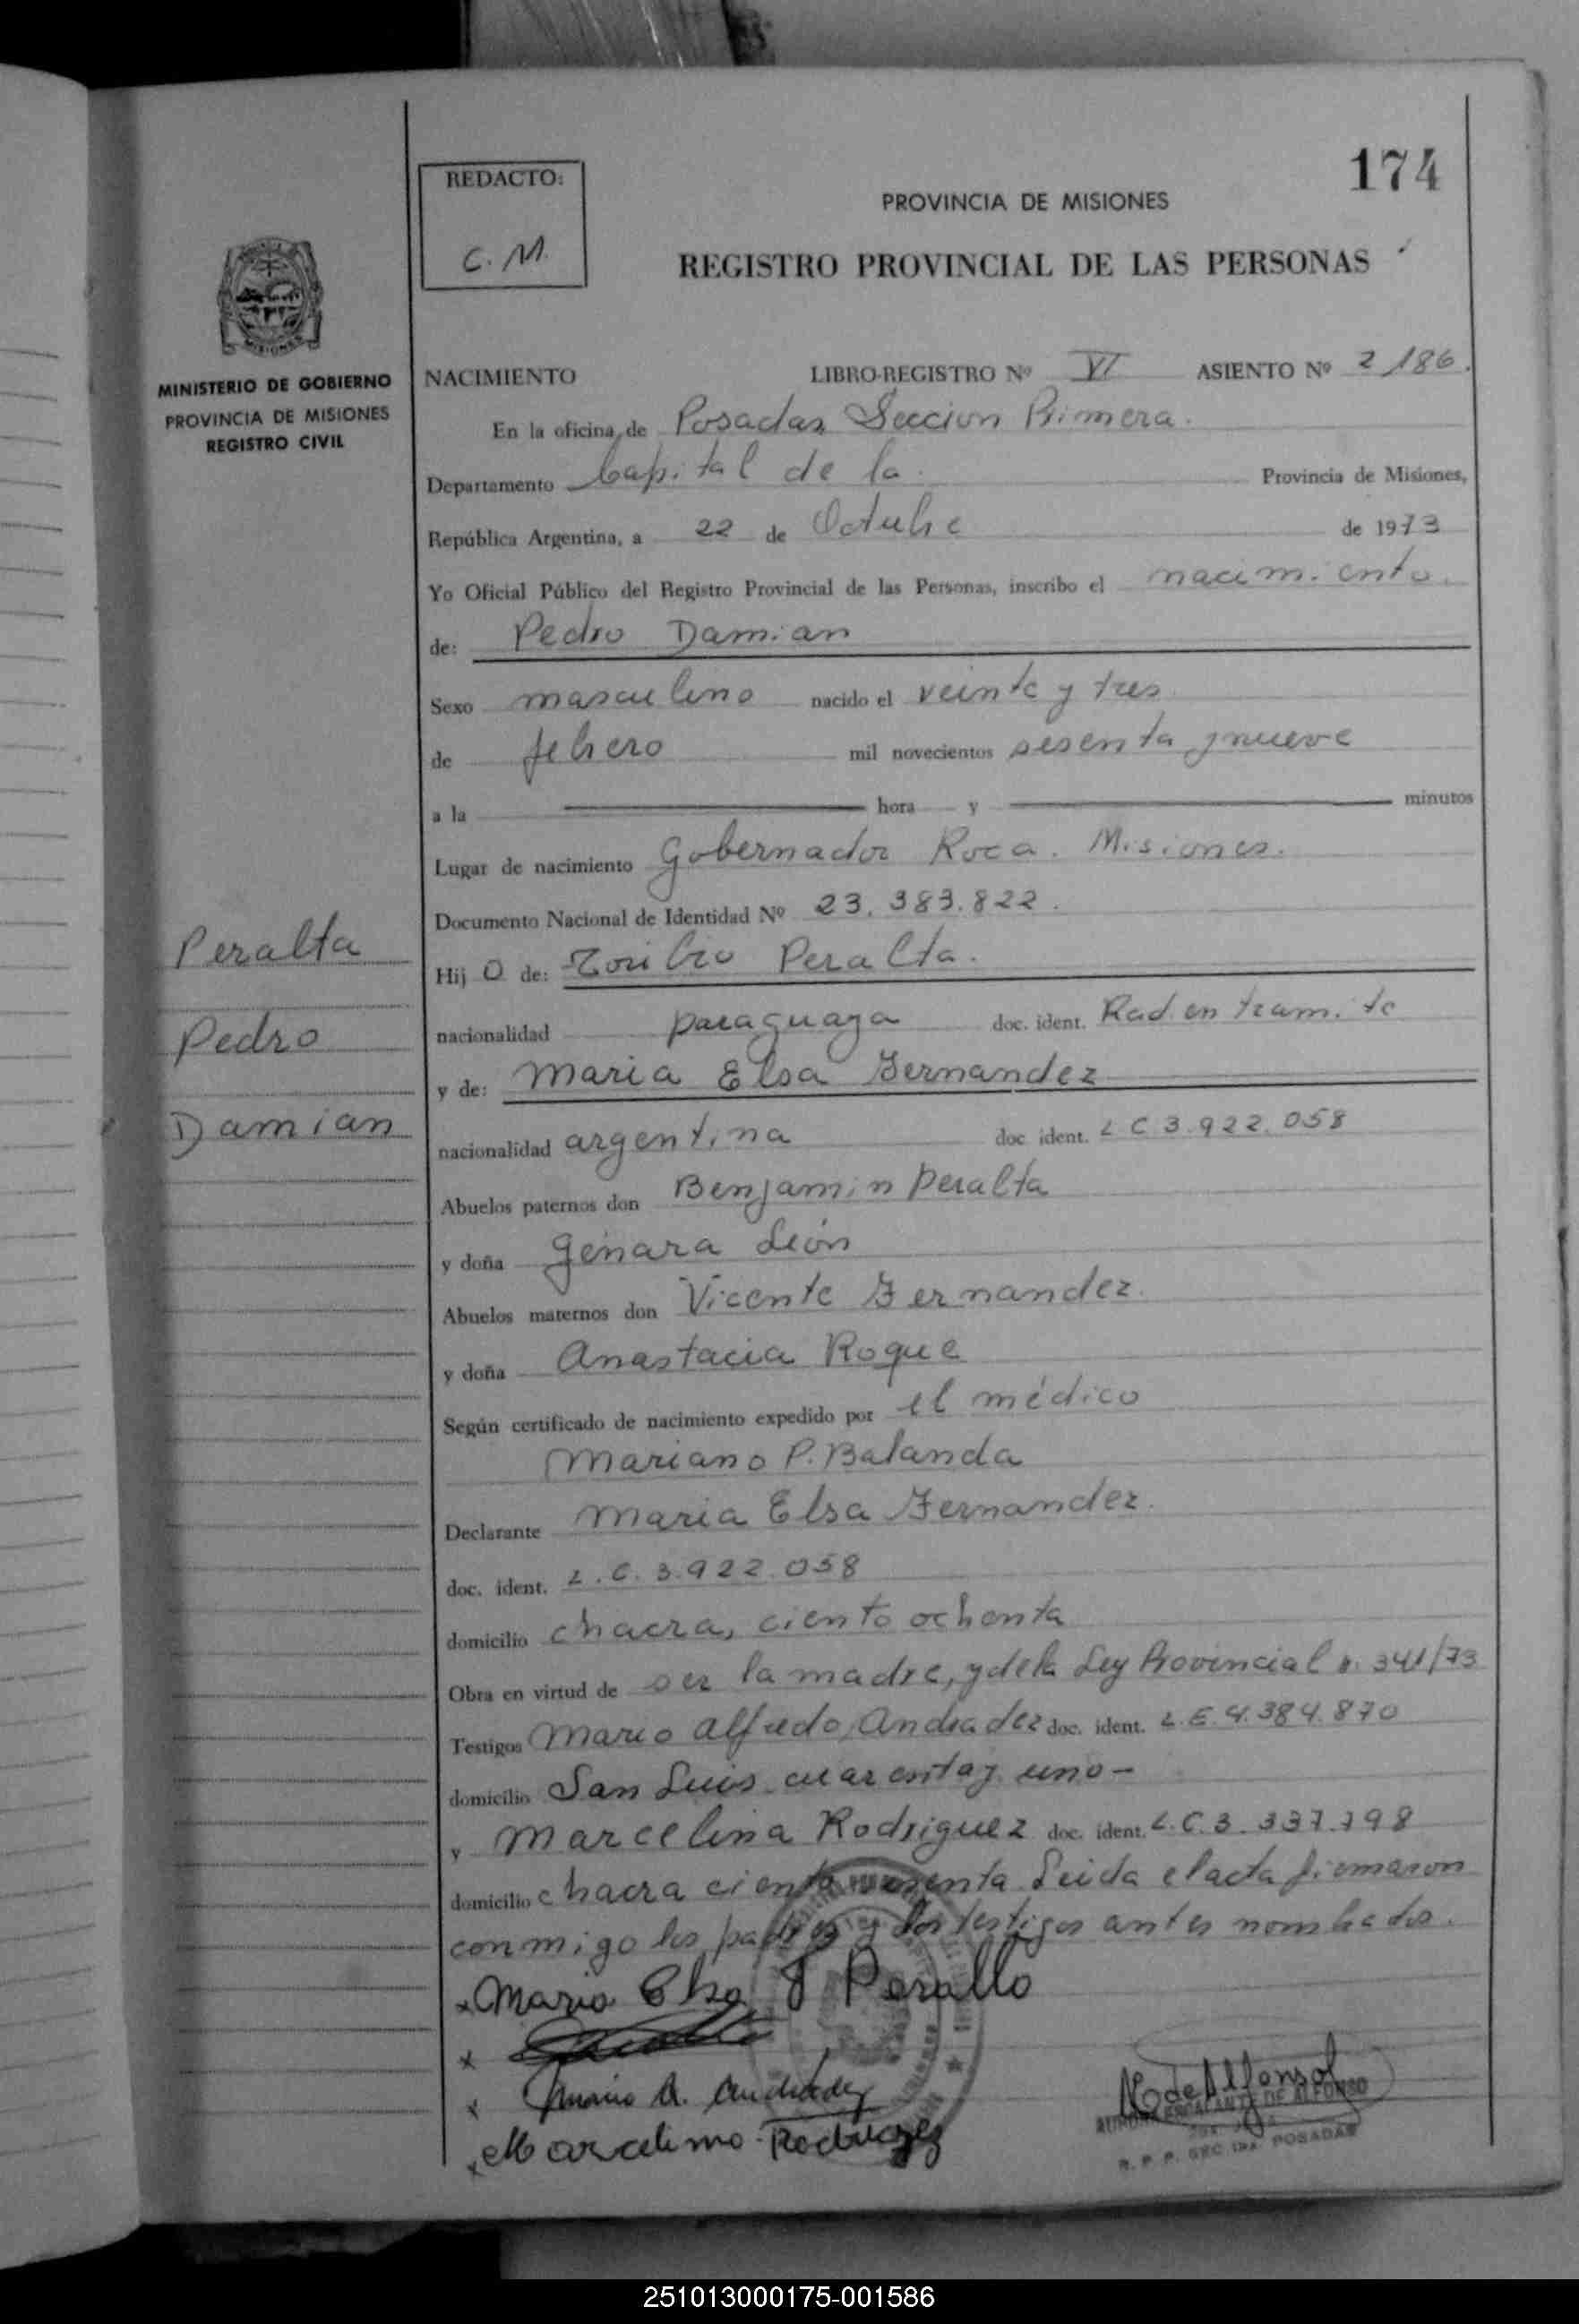 174
REDACTO:
C. M.
PROVINCIA DE MISIONES
REGISTRO PROVINCIAL DE LAS PERSONAS
MISIONES
MINISTERIO DE GOBIERNO
PROVINCIA DE MISIONES
REGISTRO CIVIL
NACIMIENTO LIBRO-REGISTRO Nº VI ASIENTO Nº 2186.
En la oficina de Posadas Seccion Primera.
Departamento Capital de la Provincia de Misiones,
República Argentina, a 22 de Octubre de 1973
Yo Oficial Público del Registro Provincial de las Personas, inscribo el nacimiento
de: Pedro Damian
Sexo masculino nacido el veinte y tres
de febrero mil novecientos sesenta y nueve
a la hora y minutos
Lugar de nacimiento Gobernador Roca. Misiones.
Documento Nacional de Identidad Nº 23.383.822.
Peralta
Hij o de: Toribio Peralta.
nacionalidad paraguaya doc. ident. Rad. en tramite
Pedro
y de: Maria Elsa Fernandez
Damian
nacionalidad argentina doc ident. L C 3.922.058
Abuelos paternos don Benjamin Peralta
y doña Génara León
Abuelos maternos don Vicente Fernandez.
y doña Anastacia Roque
Según certificado de nacimiento expedido por el médico
Mariano P. Balanda
Declarante Maria Elsa Fernandez.
doc. ident. L.C. 3.922.058
domicilio chacra, ciento ochenta
Obra en virtud de ser la madre, y de la Ley Provincial n. 341/73
Testigos Mario Alfredo Andradez doc. ident. L.E. 4.384.870
domicilio San Luis cuarenta y uno-
y Marcelina Rodriguez doc. ident. L.C. 3.337.798
domicilio chacra ciento Leida el acta firmaron
conmigo los padres y los testigos antes nombrados.
x Maria Elsa F Peralta
x
x Mario A. Andradez
x Marcelina Rodriguez
AURORA ESCALANTE DE ALFONSO
R. P. P. SEC. 1RA. POSADAS
251013000175-001586